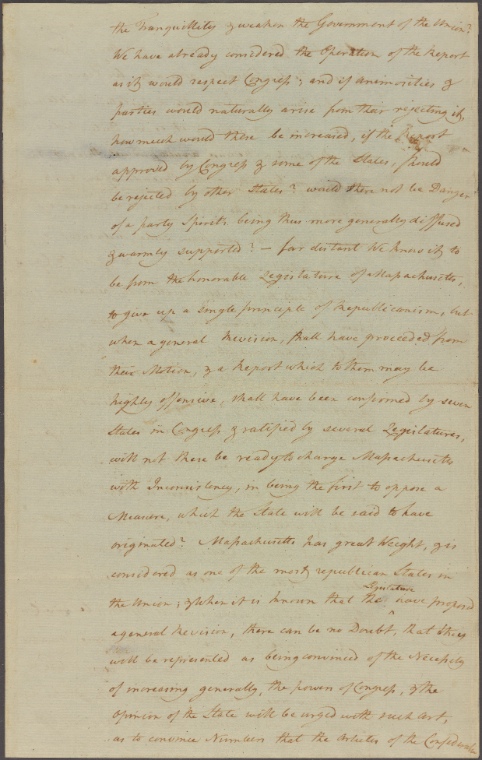 the Tranquillity & weaken the Government of the Union?
We have already considered the Operation of the Report
as it would respect Congress; and if animosities &
parties would naturally arise from their rejecting it,
how much would these be increased, if the Report
approved by Congress & some of the States, should
be rejected by other States? would there not be Danger
of a party Spirit's being thus more generally diffused
& warmly supported? — far distant We know it to
be from the honorable Legislature of Massachusetts,
to give up a single principle of Republicanism, but
when a general Revision, shall have proceeded from
their Motion, & a Report which to them may be
highly offensive, shall have been confirmed by seven
States in Congress & ratified by several Legislatures,
will not these be ready to charge Massachusetts
with Inconsistency, in being the first to oppose a
Measure, which the State will be said to have
originated? Massachusetts has great Weight, & is
considered as one of the most republican States in
Legislature
the Union; & when it is known that the have proposed
a general Revision, there can be no Doubt, that they
will be represented as being convinced of the Necessity
of increasing generally, the powers of Congress, & the
Opinion of the State will be urged with such Art,
as to convince Numbers that the Articles of the Confederation